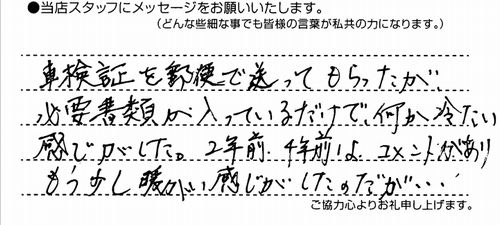 ●当店スタッフにメッセージをお願いいたします。
(どんな些細な事でも皆様の言葉が私共の力になります。)
車検証を郵便で送ってもらったが、
必要書類が入っているだけで、何か冷たい
感じがした。2年前、4年前は、コメントがあり
もう少し暖かい感じがしたのだが、、、
ご協力心よりお礼申し上げます。